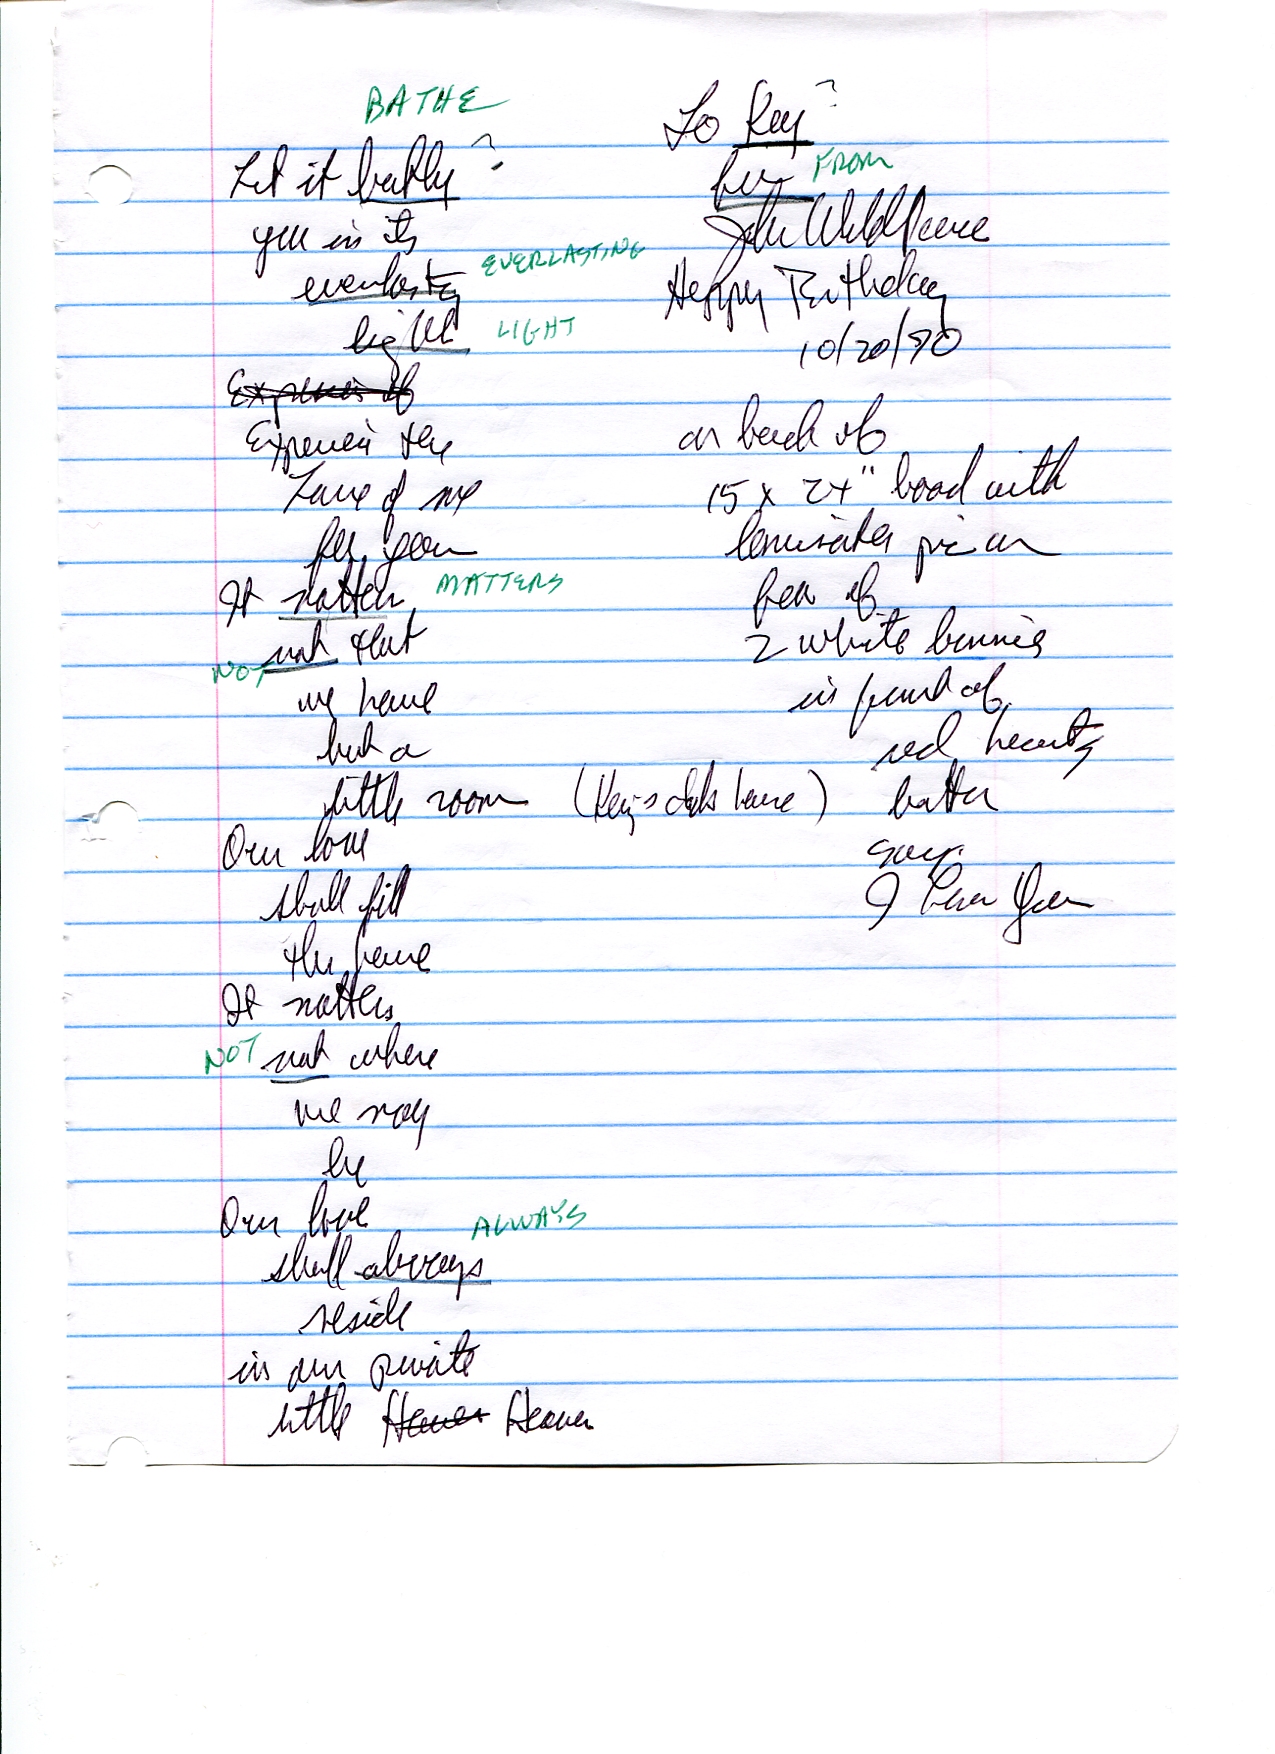 BATHE
Let it bathe ?
you in its
everlasting EVERLASTING
light LIGHT
Experience the
Love of me
for you
It matters MATTERS
NOT not that
we have
but a
little room
Our love
shall fill
the
It matters
NOT not where
we may
be
Our love ALWAYS
shall always
reside
in our private
little Heaven
To Key ?
FROM
John
Happy Birthday
10/20/90
on back of
15 x 24" board with
pic on
of
2 white bunnies
in front of
red hearts
says
I Love You